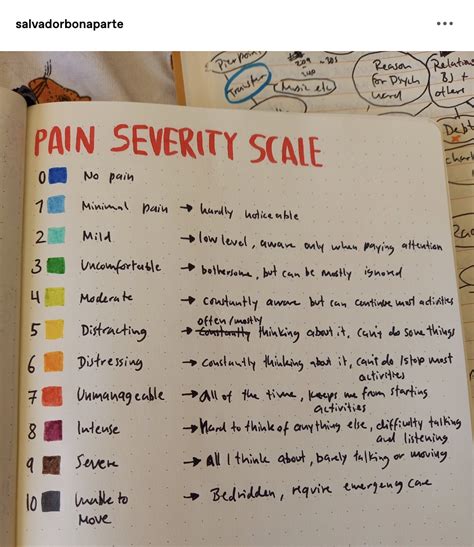 salvadorbonaparte
Pierpoint
209
Transfer
Music etc
Reason
for Psych
ward
Relations
BJ +
others
Debt
PAIN SEVERITY SCALE
0 No pain
1 Minimal pain → hardly noticeable
2 Mild → low level, aware only when paying attention
3 Uncomfortable → bothersome, but can be mostly ignored
4 Moderate → constantly aware but can continue most activities
often/mostly
5 Distracting → Constantly thinking about it, can't do some things
6 Distressing → constantly thinking about it, can't do/stop most
activities
7 Unmanageable → all of the time, keeps me from starting
activities
8 Intense → Hard to think of anything else, difficulty talking
and listening
9 Severe → All I think about, barely talking or moving
10 Unable to → Bedridden, require emergency care
Move